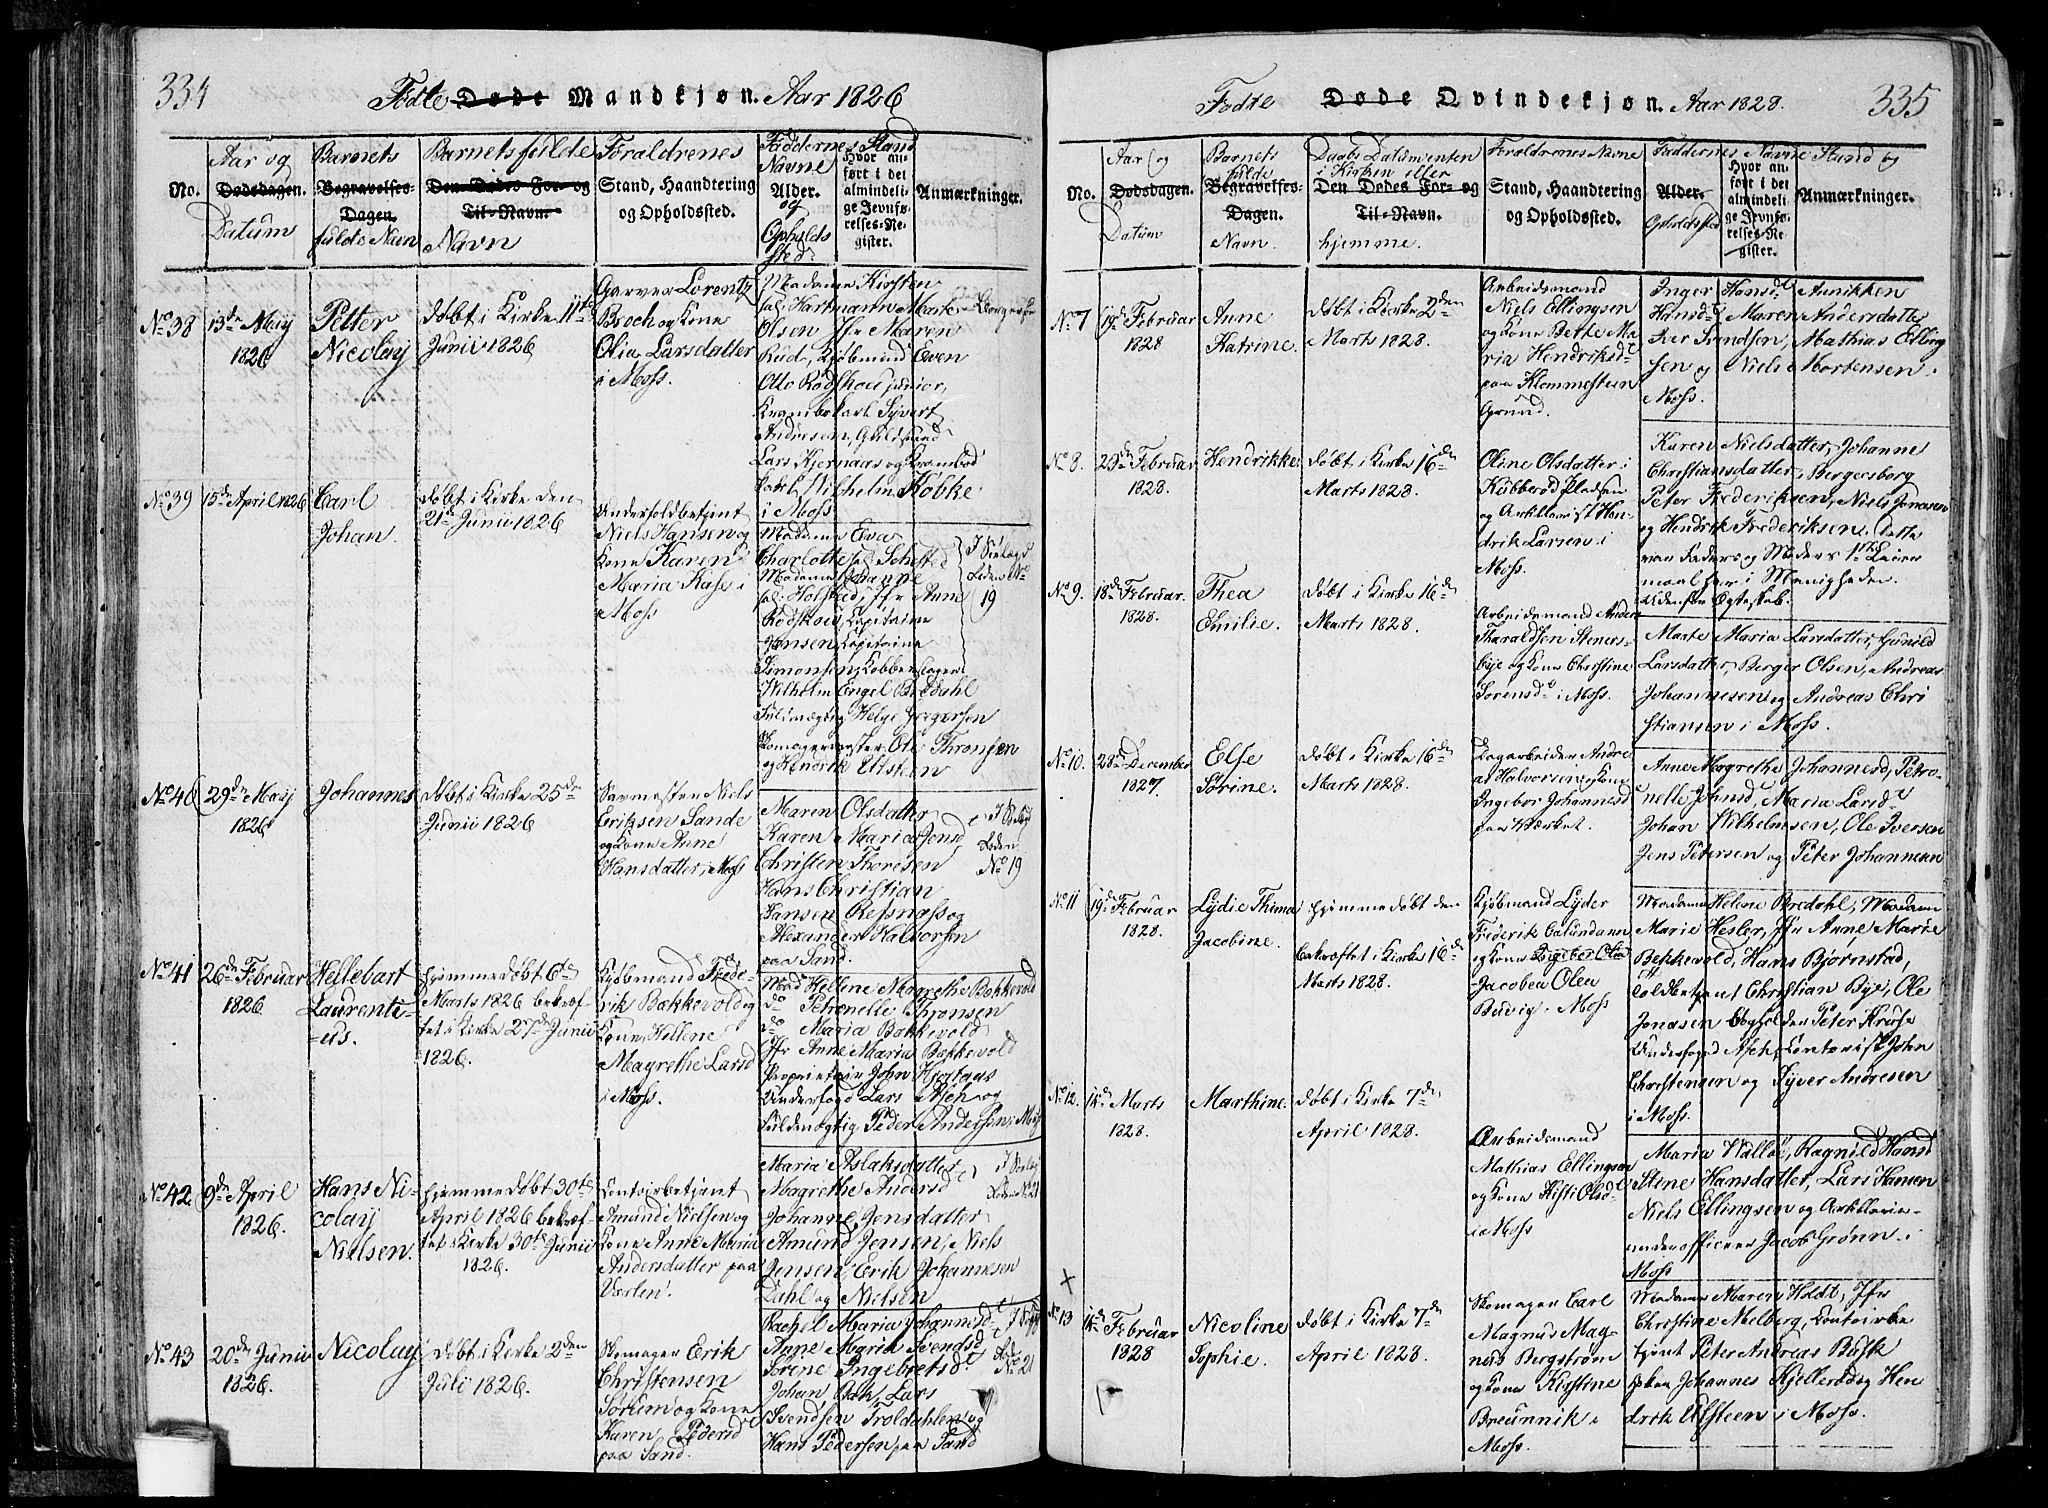 334
Fødte Døde Mandkjøn. Aar 1826
No.
Aar og
Dødsdagen.
Datum
Barnets
Begravelses-
Dagen.
fulde Navn
Barnets fulde
Den Dødes For- og
Til-Navn.
Navn
Forældrenes
Stand, Haandtering
og Opholdssted.
Faddernes Stand
Navne
Alder.
og
Opholds
sted
Hvor an-
ført i det
almindeli-
ge Jevnfø-
relses-Re-
gister.
Anmærkninger.
No 38
13de May
1826
Petter
Nicolay
døbt i Kirke 11te
Junii 1826
Garver Lorentz
Broch og Kone
Olia Larsdatter
i Moss.
Madame Kirsten
sal. Hartmann Marte
Olsen Jfr Maren
Rud, Kjøbmand Even
Otto Rødshou junior,
Krambokarl Syvert
Andresen, Guldsmed
Lars Kjernaas og Krambod
karl Wilhelm Kobke
i Moss
No 39
15de April 1826
Carl
Johan.
døbt i Kirke den
21de Junii 1826
Undertoldbetjent
Niels Hansen og
Kone Karen
Maria Kass i
Moss
Madame Eva
Charlotte sal. Schested
Madame Johanne
sal. Holsted, Jfr Anne
Rødshou, Capitaine
Jensen, Capitaine
Simonsen, Kobberslager
Wilhelm Engel Bredahl
Fuldmægtig Helge Jørgersen
Skomagermester Ole Thronsen
og Hendrik Ulsteen
I Bielags
Leden No
19
No 40
29de May
1826
Johannes
døbt i Kirke 25de
Junii 1826
Niels
Eriksen Sande
og Kone Anne
Hansdatter i Moss
Maren Olsdatter
Karen Maria Jensd
Christen Thoresen
Hans Christian
Hansen Refsnæs og
Alexander Halvorsen
paa Sand.
I Bielag
Leden
No 19
No 41
26de Februar
1826
Hellebart
Laurenti-
us.
hjemmedøbt 6te
Marts 1826 bekræf-
tet i Kirke 27de Junii
1826.
Kjøbmand Frede-
rik Bækkevold og
Kone Hellene
Magrethe Larsd
i Moss.
Mad Hellene Magrethe Bækkevold
do Petronelle Thronsen
do Maria Bækkevold
Jfr Anne Maria Bækkevold
Proprietair John Hjortaas
Underfogd Lars Asch og
Fuldmægtig Peder Andersen i Moss
No 42
9de April
1826.
Hans Ni-
colay
Nielsen.
hjemmedøbt 30te
April 1826 bekræf-
tet i Kirke 30te Junii
1826.
Contoirbetjent
Amund Nielsen og
Kone Anne Maria
Andersdatter paa
Værlen.
Maria Aslaksdatter
Magrethe Andersd
Johanne Jensdatter
Amund Jensen, Niels
Jensen, Erik Johannesen
Dahl og Nielsen
I Bielag
Leden No 21
No 43
20de Junii
1826.
Nicolay
døbt i Kirke 2den
Julii 1826.
Skomager Erik
Christensen
Sørum og Kone
Karen Pedersd
paa Sand.
Rachel Maria Johannesd
Anne Marie Svendsd
Sørene Ingebretsd
Johan Lars
Svendsen Troldahlen og
Hans Pedersen paa Sand
No 21
335
Fødte Døde Qvindekjøn. Aar 1828.
No.
Aar og
Dødsdagen.
Datum
Barnets
fulde
Begravelses-
Dagen.
Navn.
Daabs Datumenten
i Kirken eller
Den Dødes For- og
Til-Navn.
hjemme.
Forældrenes Navne
Stand, Haandtering
og Opholdssted.
Faddernes Navne Stand og
Alder.
Opholdssted
Hvor an-
ført i det
almindeli-
ge Jevnfø-
relses-Re-
gister.
Anmærkninger.
No 7
19de Februar
1828
Anne
Katrine.
døbt i Kirke 2den
Marts 1828.
Arbeidsmand
Niels Ellingsen
og Kone Bertte Ma
ria Hendriksd
paa Klommesteen
Grund.
Inger Hansd Annikken
Hansd Maren Andersdatter
Iver Svendsen, Mathias Elling
sen og Niels Mortensen i
Moss.
No 8.
29de Februar
1828.
Hendrikke
døbt i Kirke 16de
Marts 1828.
Oline Olsdatter i
Kubberød Pladsen
og Artillerist Hen-
drik Larsen i
Moss.
Karen Nielsdatter, Johanne
Christiansdatter, i Bergersborg
Peter Frederiksen, Niels Jonasen
og Hendrik Frederiksen. Dette
var Faders og Moders 1ste Leier
maal her i Menigheden.
Udenfor Egteskab.
No 9.
18de Februar.
1828.
Thea
Emilie.
døbt i Kirke 16de
Marts 1828.
Arbeidsmand Anders
Tharaldsen Steners-
bye og Kone Christine
Sorensd i Moss.
Marte Maria Larsdatter, Gunild
Larsdatter, Berger Olsen, Andreas
Johannesen og Andreas Chri
stiansen i Moss.
No 10.
28de December
1827
Else
Sorine.
døbt i Kirke 16de
Marts 1828.
Dagarbeider Andre
as Halvorsen og Kone
Ingebor Johannesd
paa Værket.
Anne Magrethe Johannesd, Petro-
nelle Johnsd, Maria Larsd
Johan Wilhelmsen, Ole Iversen
Jens Petersen og Peter Johannesen
No 11
19de Februar
1828.
Lydie Thima
Jacobine.
hjemmedøbt den
bekræftet i Kirke 16de
Marts 1828.
Kjøbmand Lyder
Frederik Calundann
og Kone
Jacobea Olea
Budvig i Moss
Madame Helene Bredahl, Madam
Marie Hesler, Jfr Anne Marie
Bekkevold, Hans Bjornstad,
Toldbetjent Christian Bye, Ole
Jonasen Peter Kruse
Underfoged Asch, Contorist John
Christensen og Syver Andresen
i Moss.
No 12.
1de Marts
1828.
Marthine.
døbt i Kirke 7de
April 1828.
Arbeidsmand
Mathias Ellingsen
og Kone Kisti Olsd
i Moss
Maria Walløe, Ragnild Hansd
Stine Hansdatter, Lars Hansen
Niels Ellingsen og Artillerie-
underofficeer Jacob Grønn i
Moss
x
No 13
1de Februar
1828
Nicoline
Sophie.
døbt i Kirke 7de
April 1828.
Skomager Carl
Magnus Mag-
nus Bergstrøm
og Kone Kirstine
Breunnik i
Moss.
Madame Maren Holdt, Jfr
Christine Melberg, Contoirbe
tjent Peter Andreas Busk
Johannes Kjellerød og Hen
drik Ulsteen i Moss.